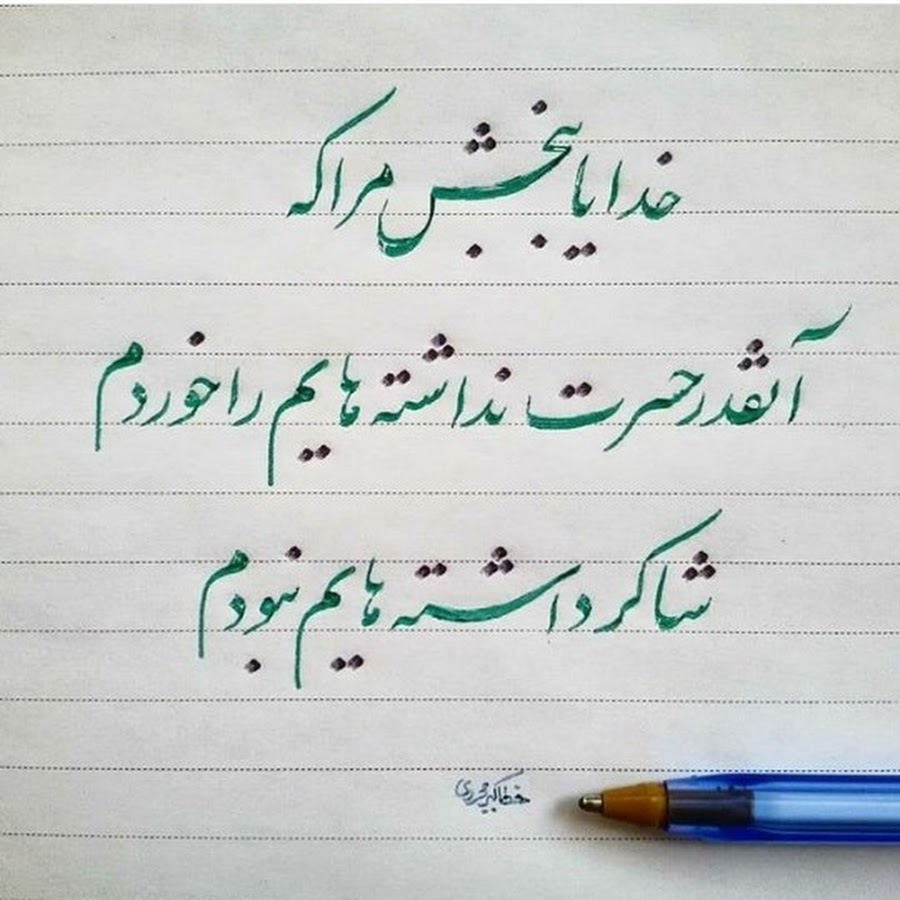 خدایا ببخش مرا که
آنقدر حسرت نداشته هایم را خوردم
شاکر داشته هایم نبودم
خط اکبر